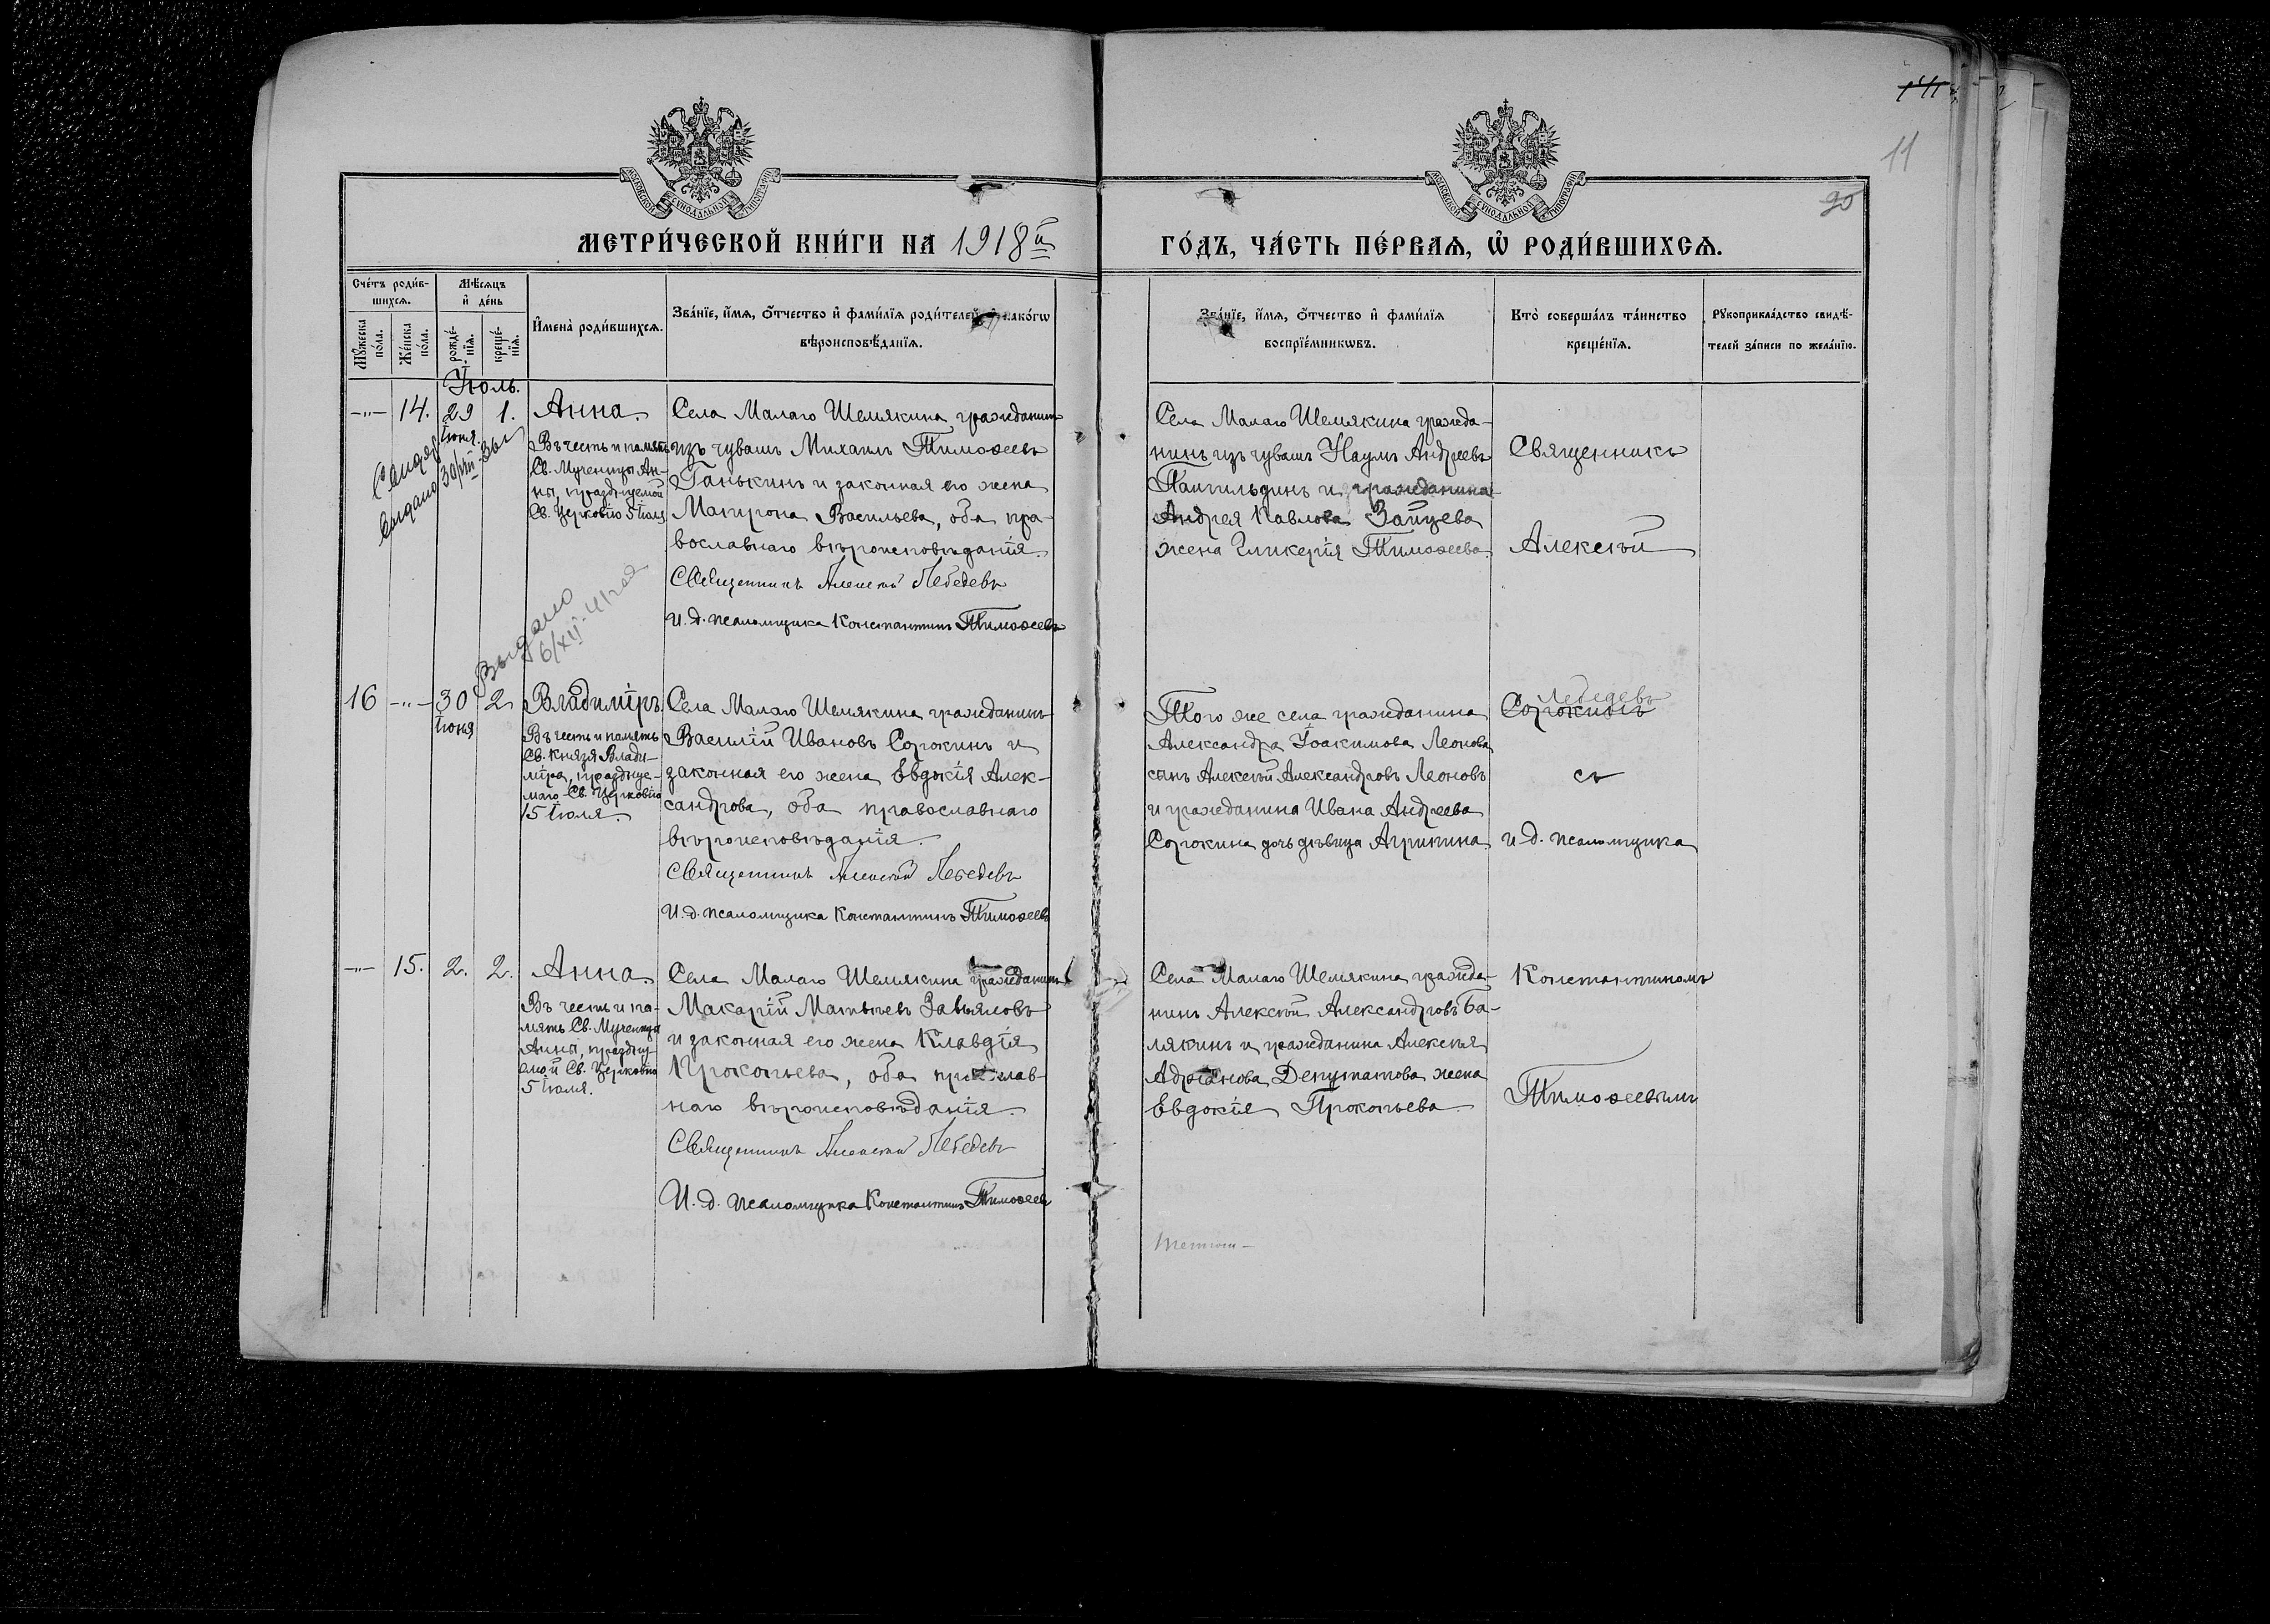 11
90
МЕТРИ́ЧЕСКОЙ КНИ́ГИ НА 1918й
ГО́ДЪ, ЧА́СТЬ ПЕ́РВАЯ, Ѡ РОДИ́ВШИХСЯ.
Сче́тъ роди́в-
шихся.
Мѣ́сяцъ
и де́нь
Му́жеска
по́ла.
Же́нска
по́ла.
рожде́-
нїя.
креще́-
нїя.
Имена̀ роди́вшихся.
Зва́нїе, и́мя, о́тчество и фами́лїя роди́телей, и како́гѡ
вѣроисповѣ́данїя.
Зва́нїе, и́мя, о́тчество и фами́лїя
воспрїе́мникѡвъ.
Кто̀ соверша́лъ та́инство
креще́нїя.
Рукоприкла́дство свидѣ́-
телей за́писи по жела́нїю.
Іюль.
-"- 14. 29 1. Анна
Іюня.
Въ честь и память
Св. Мученицы Ан-
ны, празднуемой
Св. Церковію 5 Іюля
выдано
Села Малаго Шемякина гражданинъ
изъ чувашъ Михаилъ Тимоѳеевъ
Ганькинъ и законная его жена
Матрона Васильева, оба пра-
вославнаго вѣроисповѣданія.
Священникъ Алексѣй Лебедевъ
И. д. псаломщика Константинъ Тимоѳеевъ
Села Малаго Шемякина гражда-
нинъ изъ чувашъ Наумъ Андреевъ
Паигильдинъ и гражданина
Андрея Павлова Зайцева
жена Гликерія Тимоѳеева.
Священникъ
Алексѣй
Выдано
6/XII-41 года
16 -"- 30 2 Владиміръ
Іюня
Въ честь и память
Св. Князя Влади-
міра, празднуе-
маго Св. Церковію
15 Іюля.
Села Малаго Шемякина гражданинъ
Василій Ивановъ Сорокинъ и
законная его жена Евдокія Алек-
сандрова, оба православнаго
вѣроисповѣданія.
Священникъ Алексѣй Лебедевъ
И. д. псаломщика Константинъ Тимоѳеевъ
Того же села гражданина
Александра Іоакимова Леонова
сынъ Алексѣй Александровъ Леоновъ
и гражданина Ивана Андреева
Сорокина дочь дѣвица Агрипина.
Лебедевъ
Сорокинъ
съ
и. д. псаломщика
-"- 15. 2. 2. Анна
Въ честь и па-
мять Св. Мученицы
Анны, праздну-
емой Св. Церковію
5 Іюля.
Села Малаго Шемякина гражданинъ
Макарій Матвѣевъ Завьяловъ
и законная его жена Клавдія
Прокопьева, оба православ-
наго вѣроисповѣданія.
Священникъ Алексѣй Лебедевъ
И. д. псаломщика Константинъ Тимоѳеевъ
Села Малаго Шемякина гражда-
нинъ Алексѣй Александровъ Ба-
лякинъ и гражданина Алексѣя
Адріанова Депутатова жена
Евдокія Прокопьева
Константиномъ
Тимоѳеевымъ